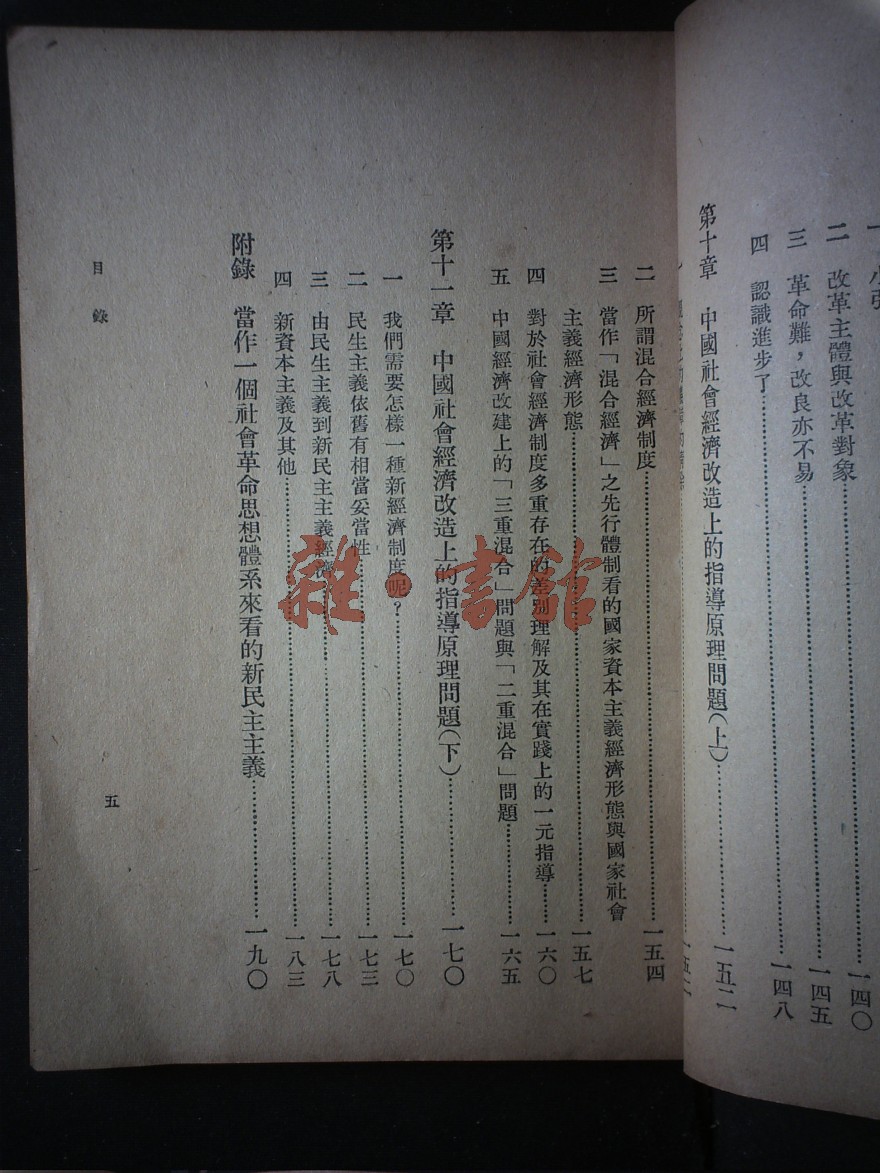 二　改革主體與改革對象……一四〇
三　革命難，改良亦不易……一四五
四　認識進步了……一四八
第十章　中國社會經濟改造上的指導原理問題（上）……一五二
二　所謂混合經濟制度……一五四
三　當作「混合經濟」之先行體制看的國家資本主義經濟形態與國家社會
主義經濟形態……一五七
四　對於社會經濟制度多重存在的差別理解及其在實踐上的一元指導……一六〇
五　中國經濟改建上的「三重混合」問題與「二重混合」問題……一六五
第十一章　中國社會經濟改造上的指導原理問題（下）……一七〇
一　我們需要怎樣一種新經濟制度呢？……一七〇
二　民生主義依舊有相當妥當性……一七三
三　由民生主義到新民主主義經濟……一七八
四　新資本主義及其他……一八三
附錄　當作一個社會革命思想體系來看的新民主主義……一九〇
目錄
五
雜·書館